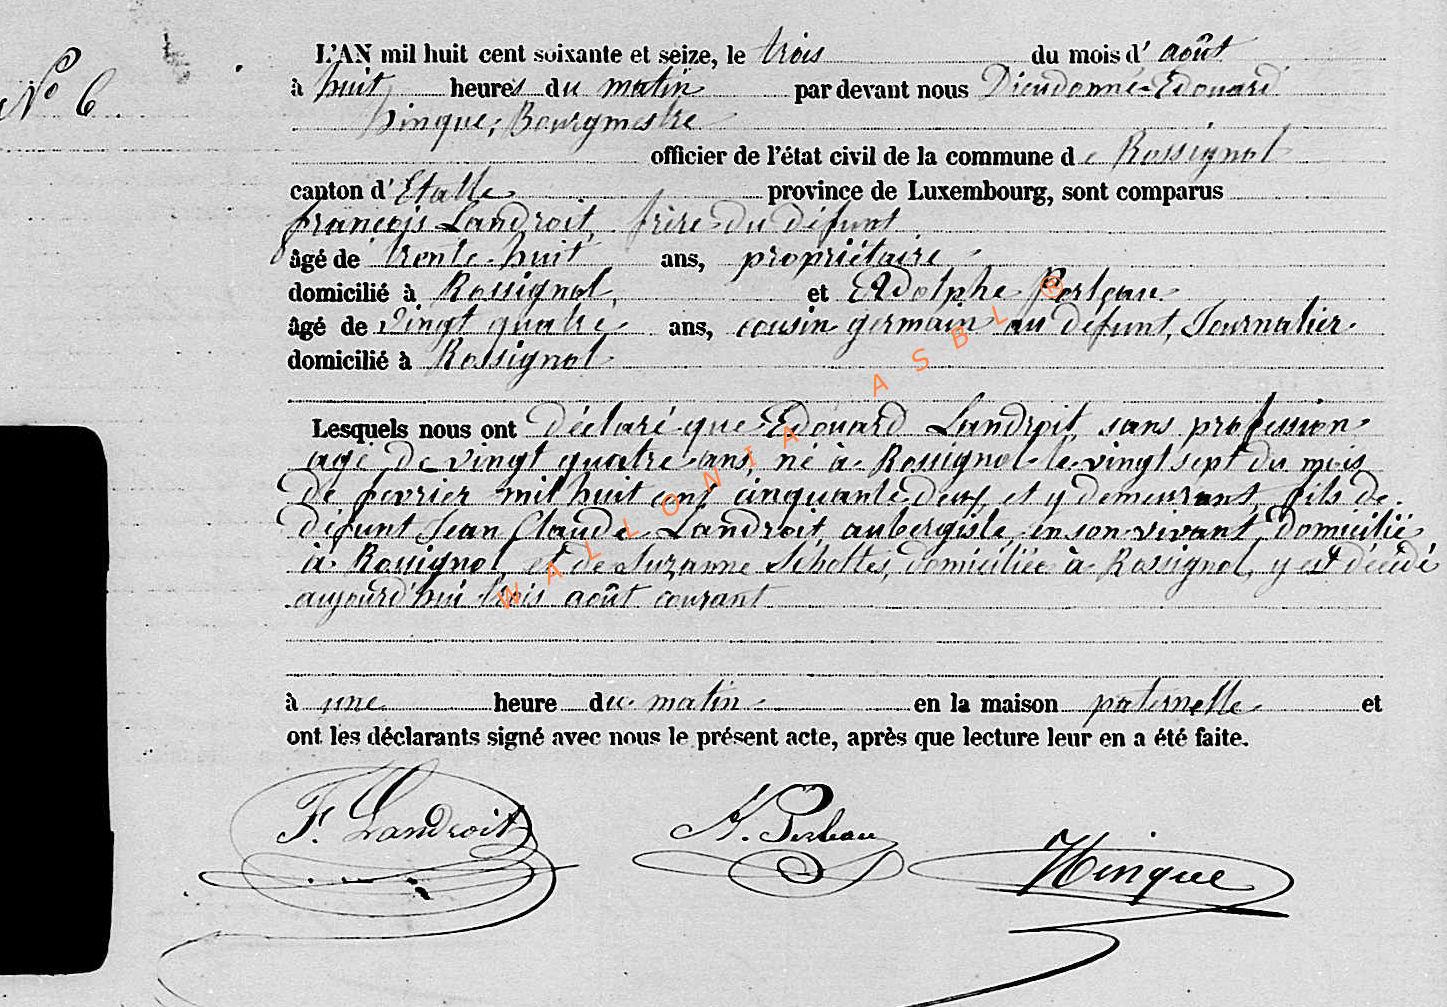 N° 6
L'AN mil huit cent soixante et seize, le trois du mois d'août
à huit heures du matin par devant nous Dieudonné Edouard
Hinque, Bourgmestre
officier de l'état civil de la commune de Rossignol
canton d'Etalle province de Luxembourg, sont comparus
François Landroit, frère du défunt
âgé de trente huit ans, propriétaire
domicilié à Rossignol, et Adolphe
âgé de vingt quatre ans, cousin germain au défunt, Journalier
domicilié à Rossignol
Lesquels nous ont déclaré que Edouard Landroit, sans profession
agé de vingt quatre ans, né à Rossignol le vingt sept du mois
de fevrier mil huit cent cinquante deux, et y demeurant, fils de
défunt Jean Claude Landroit, aubergiste, en son vivant, domicilié
à Rossignol, et de Suzanne Scholtes, domiciliée à Rossignol, y est décédé
aujourd'hui trois août courant
à une heure du matin en la maison paternelle et
ont les déclarants signé avec nous le présent acte, après que lecture leur en a été faite.
F. Landroit A. Hinque
WALLONIA ASBL ©